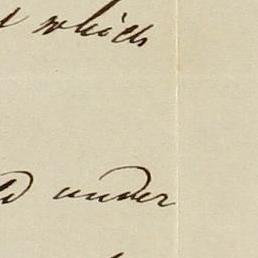 which
under